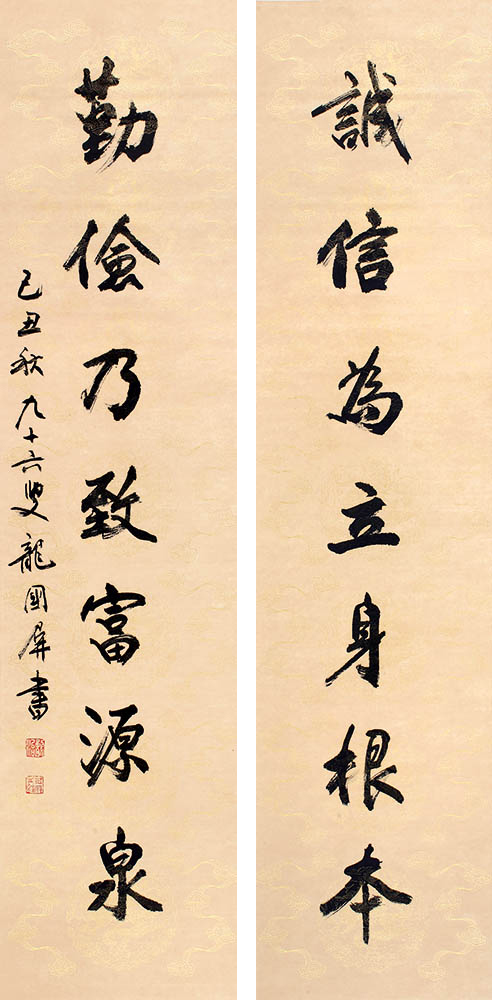 誠信為立身根本
勤儉乃致富源泉
己丑秋九十六叟龍國屏書